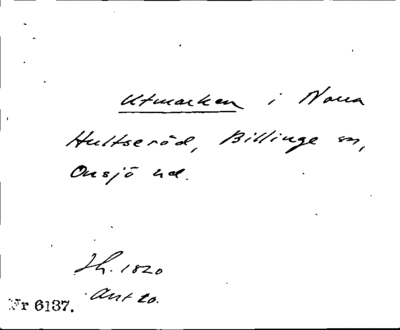 Utmarken i Norra
Hultseröd, Billinge sn,
Onsjö hd.
Jh. 1820
Ant 20.
Nr 6137.